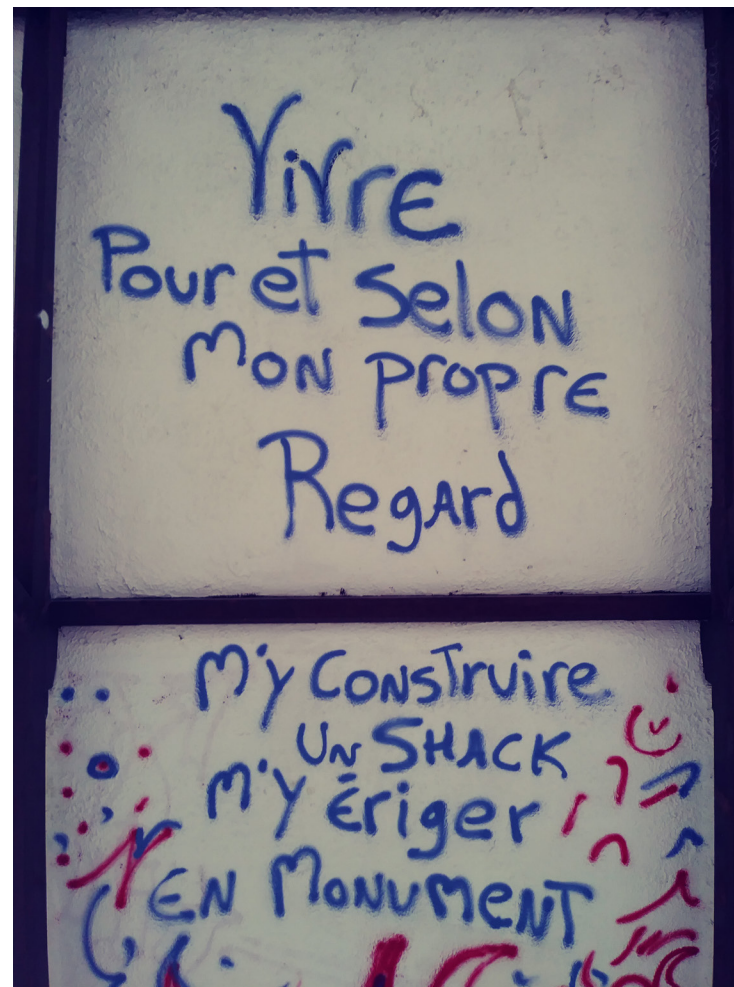 Vivre
Pour et selon
mon propre
Regard
m'y construire
un SHACK
m'y ériger
EN MONUMENT